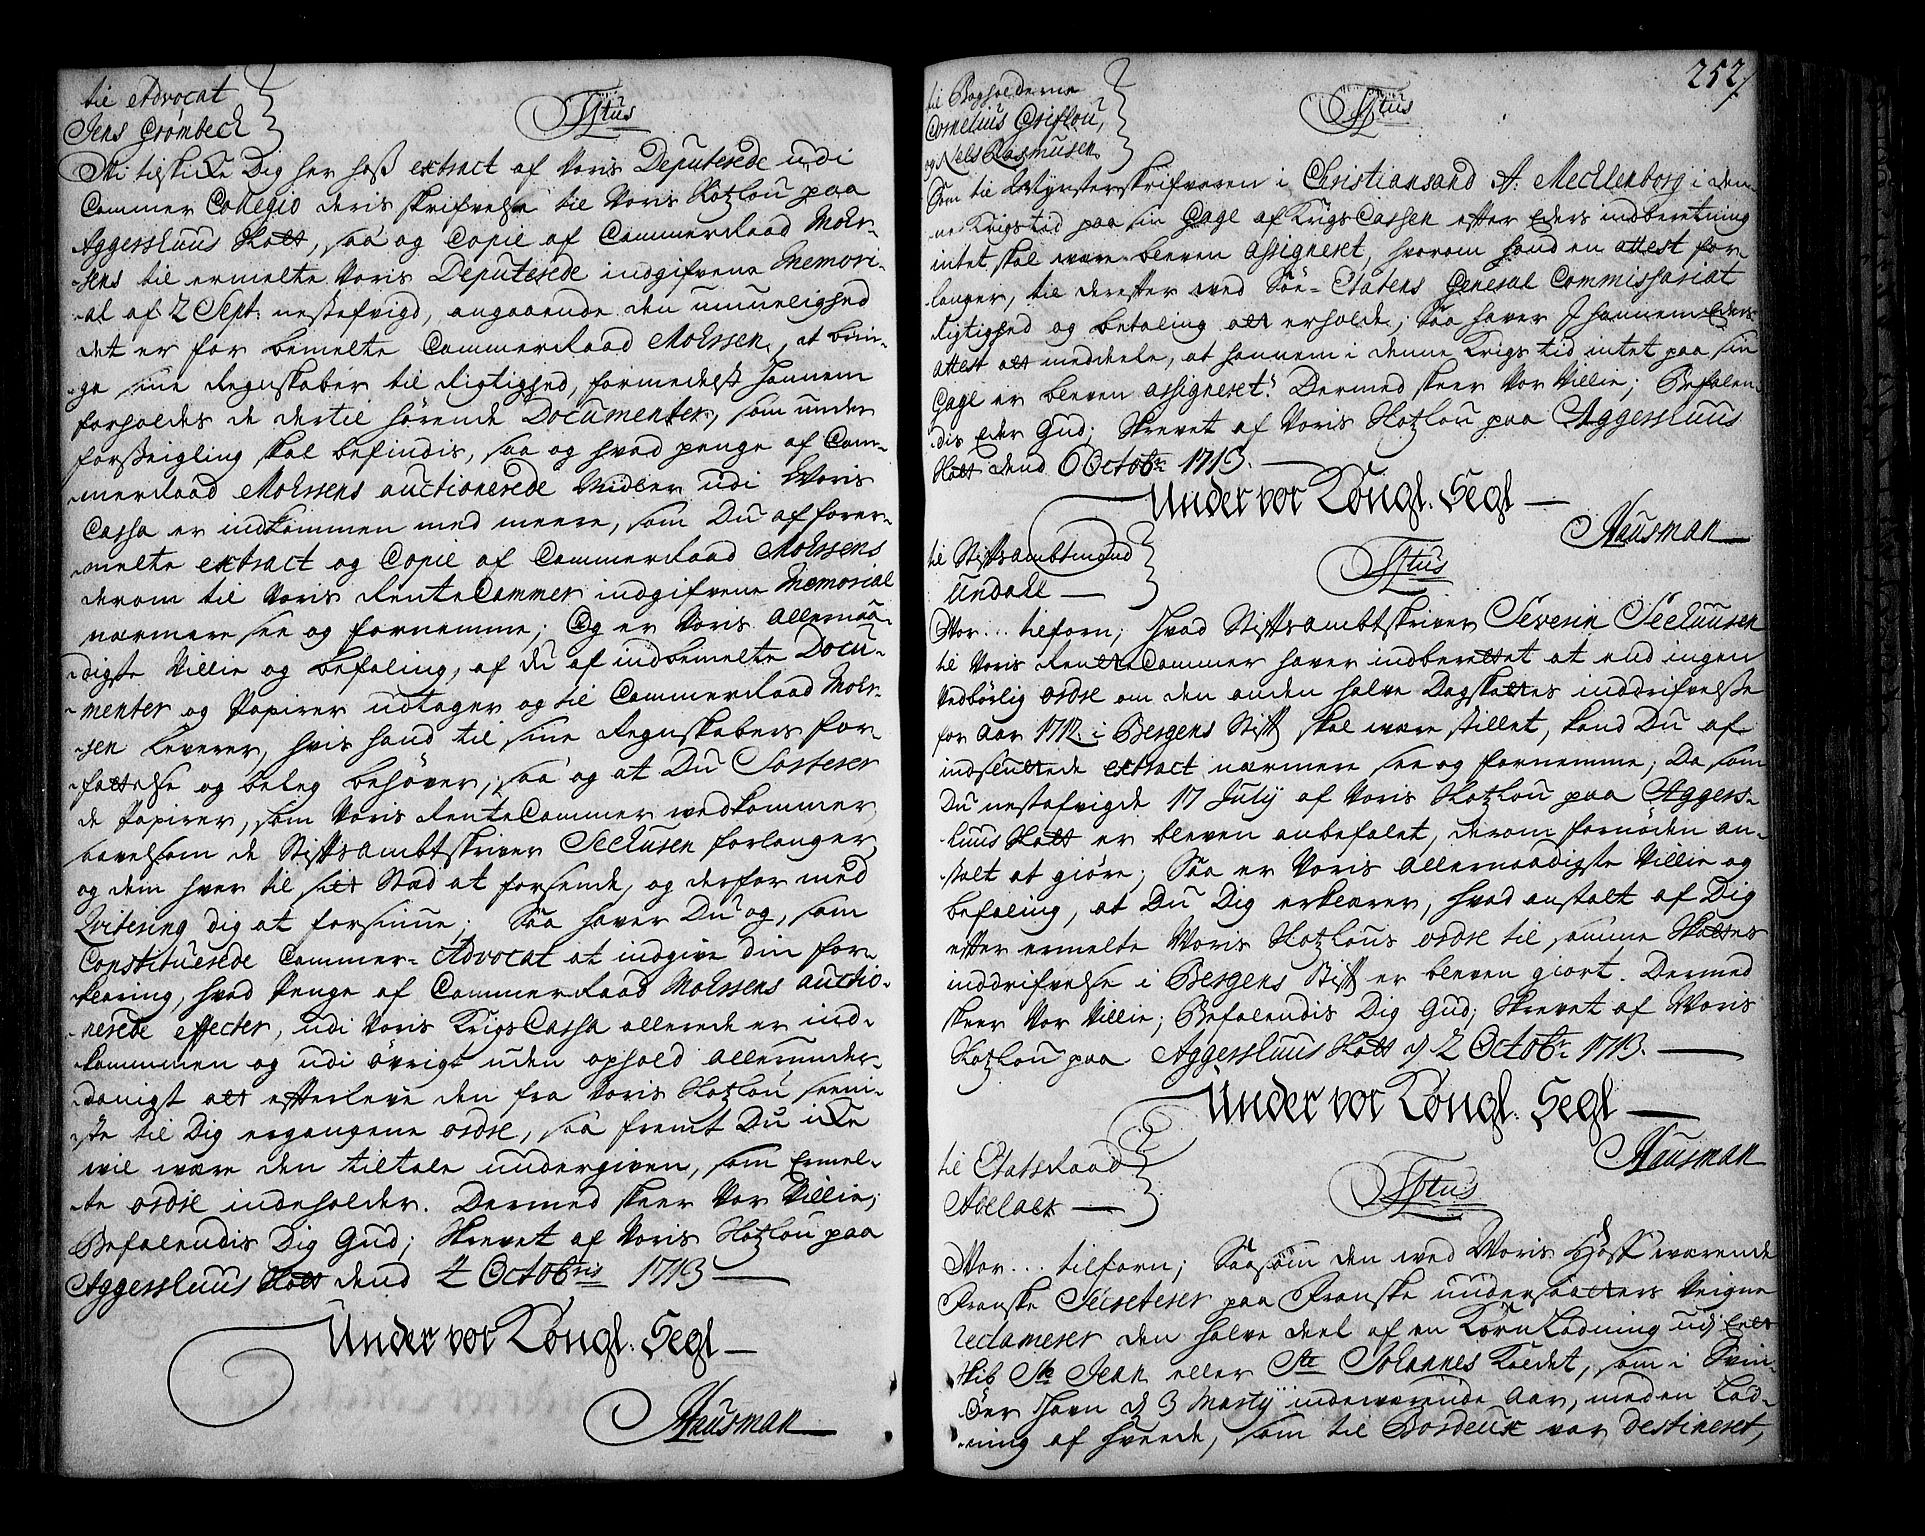 til Advocat
Jens Grømbech
Tÿtus
Wi tilskicke Dig her hoss extract af Voris Deputerede udi
Cammer Collegio deris skrifvelse til Voris Slotzlou paa
Aggershuus Slott, saa og Copie af Cammerraad Moers-
sens til ermelte Voris Deputerede indgifvene Memori-
al af 2 Sept: nestafvigd, angaaende den umuelighed
det er for bemelte Cammerraad Moerssen, at brin-
ge sine Regnskaber til Rigtighed, formedelst hannem
forholdes de dertil hørende Documenter, som under
forseigling skal befindis, saa og hvad penge af Cam-
merraad Moerssens auctionerede Midler udi Voris
Cassa er indkommen med meere, som Du af forer-
melte extract og Copie af Cammerraad Moerssens
derom til Voris RenteCammer indgifvene Memorial
nærmere see og fornemme; Og er Voris allernaa-
digste Villie og befaling, at du af indbemelte Docu-
menter og Papirer udtager og til Cammerraad Moers-
sen leverer, hvis hand til sine Regnskabers for-
fattelse og beleg behøver, saa og at Du Sorterer
de Papirer, som Voris RenteCammer vedkommer,
saavelsom de Stiftsambtskriver Seehusen forlanger,
og dem hver til sit Stæd at forsende, og derfor med
Qvitering dig at forsiune; Saa haver Du og, som
Constituerede Cammer-Advocat at indgive din for-
klaring, hvad Penge af Cammerraad Moerssens auctio-
nerede effecter, udi Voris KrigsCassa allerede er ind-
kommen og udi øvrigt uden ophold allerunder-
danigst at efterleve den fra Voris Slotzlou seeni-
ste til Dig ergangene ordre, saa fremt Du icke
vil være den tiltale undergiven, som Ermel-
te ordre indeholder. Dermed skeer Vor Villie;
Befalendis Dig Gud; Skrevet af Voris Slotzlou paa
Aggershuus Slott dend 2 Octobris 1713
Under vor Kongl. Segl
Hausman
252
til Bogholderne
Cornelius Griflou,
og Nels Rasmusen
Tÿtus
Som til Mynsterskrifveren i Christiansand A: Mecklenborg i den-
ne Krigstid paa sin Gage af KrigsCassen efter Eders indberetning
intet skal være bleven assigneret, hvorom hand en attest for-
langer, til derefter ved Søe-Etatens General Commissariat
Rigtighed og betaling at erholde; Saa haver I hannem Eders
attest at meddeele, at hannem i denne Krigs tid intet paa sin
Gage er bleven assigneret: Dermed skeer Vor Villie; Befalen-
dis Eder Gud; Skrevet af Voris Slotzlou paa Aggershuus
Slott dend 6 Octobr: 1713.
Under vor Kongl. Segl
Hausman
til Stiftsambtmand
Undall
Tÿtus
Vor... tilforn; Hvad Stiftsambtskriver Severin Seehuusen
til Voris RenteCammer haver indberettet at end ingen
Vedbørlig ordre om den anden halve Dagskattes inddrifvelse
for Aar 1712. i Bergens Stift skal være stillet, kand Du af
indsluttede extract nærmere see og fornemme; Da som
Du nestafvigde 17 July af Voris Slotzlou paa Aggers-
huus Slott er bleven anbefalet, derom fornøden an-
stalt at giøre; Saa er Voris allernaadigste Villie og
befaling, at Du Dig erklærer, hvad anstalt af Dig
efter ermelte Voris Slotzlous ordre til samme Skattes
inddrifvelse i Bergens Stift er bleven giort. Dermed
skeer Vor Villie; Befalendis Dig Gud; Skrevet af Voris
Slotzlou paa Aggershuus Slott d 2 Octobr: 1713.
Under vor Kongl. Segl
Hausman
til Etatsraad
Adelaer
Tÿtus
Vor... tilforn; Saasom den ved Voris Hoff værende
Franske Secreterer paa Franske undersaatters Veigne
reclamerer den halve deel af en KornLadning udj Eet
skib Ste Jean eller Ste Johannes Kaldet, som i Svin-
Øer Hafn d 3 Martij indeværende Aar, med en Lad-
ning af hvede, som til Bordeux var destineret,